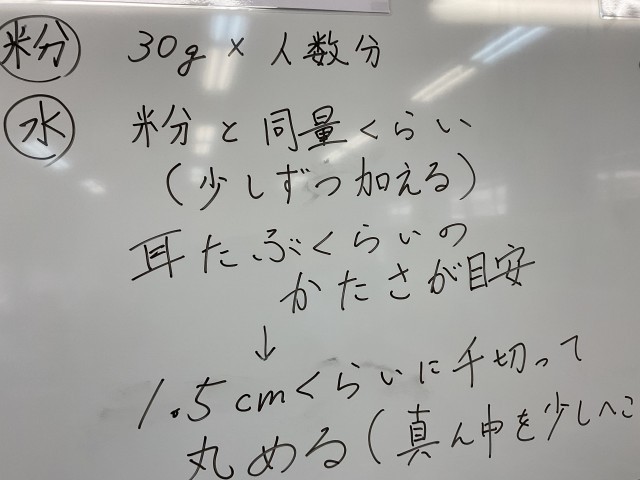 米分 30g × 人数分
水 米分と同量くらい
(少しずつ加える)
耳たぶくらいの
かたさが目安
↓
1.5cmくらいに千切って
丸める(真ん中を少しへこ